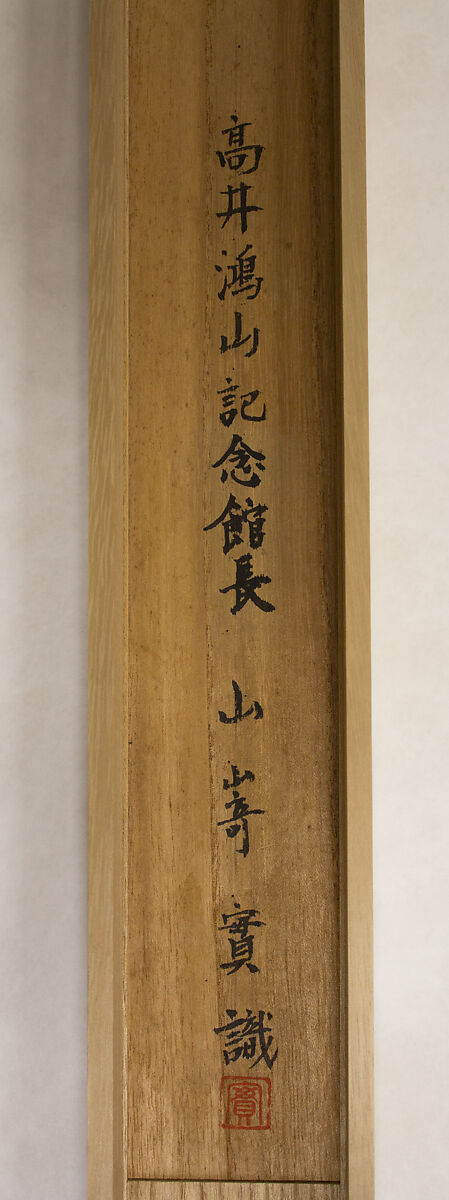 高井鴻山記念館長 山嵜實識
實